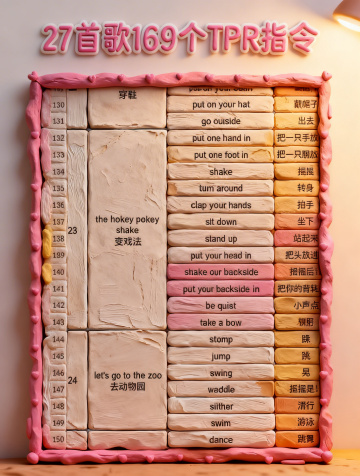 27首歌169个TPR指令
130 穿鞋 put on your hat 戴帽子
131 go ouiside 出去
132 put one hand in 把一只手放
133 put one foot in 把一只脚放
134 shake 摇摇
135 turn around 转身
136 clap your hands 拍手
137 sit down 坐下
138 23 the hokey pokey shake 变戏法 stand up 站起来
139 put your head in 把头放进
140 shake our backside 摇摇后
141 put your backside in 把你的背
142 be quist 小声点
143 take a bow 鞠躬
144 stomp 跺
145 jump 跳
146 24 let's go to the zoo 去动物园 swing
147 waddle 摇摇
148 slither 滑行
149 swim 游泳
150 dance 跳舞